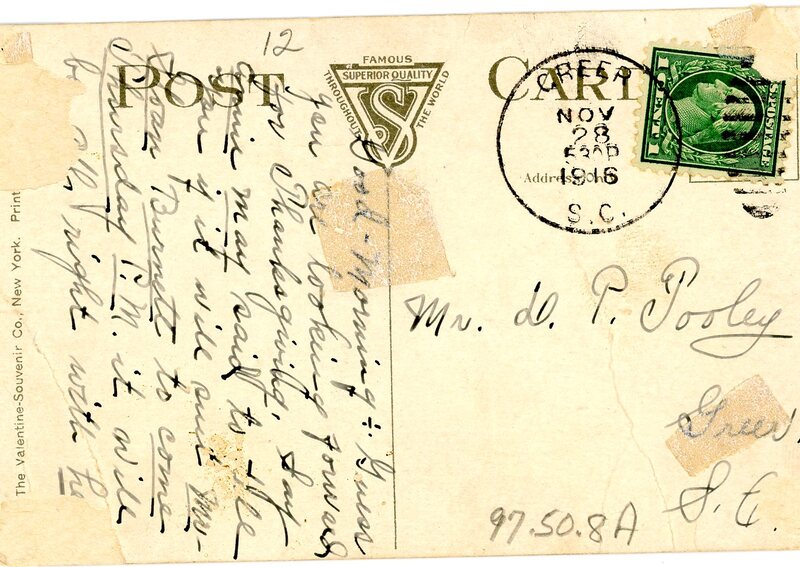 12
POST CARD
FAMOUS
SUPERIOR QUALITY
THROUGHOUT THE WORLD
VS
GREER
NOV
28
530P
1916
S.C.
U.S. POSTAGE
1 CENT 1
Address Only
Good-Morning ÷ Guess
you are looking forward
for Thanksgiving day
may said to tell
you if it will suit Mr.
Sloan Burnett to come
Thursday P.M. it will
be all right with her
Mr. D. P. Pooley
Greer,
S. C.
97.50.8A
The Valentine-Souvenir Co., New York. Print